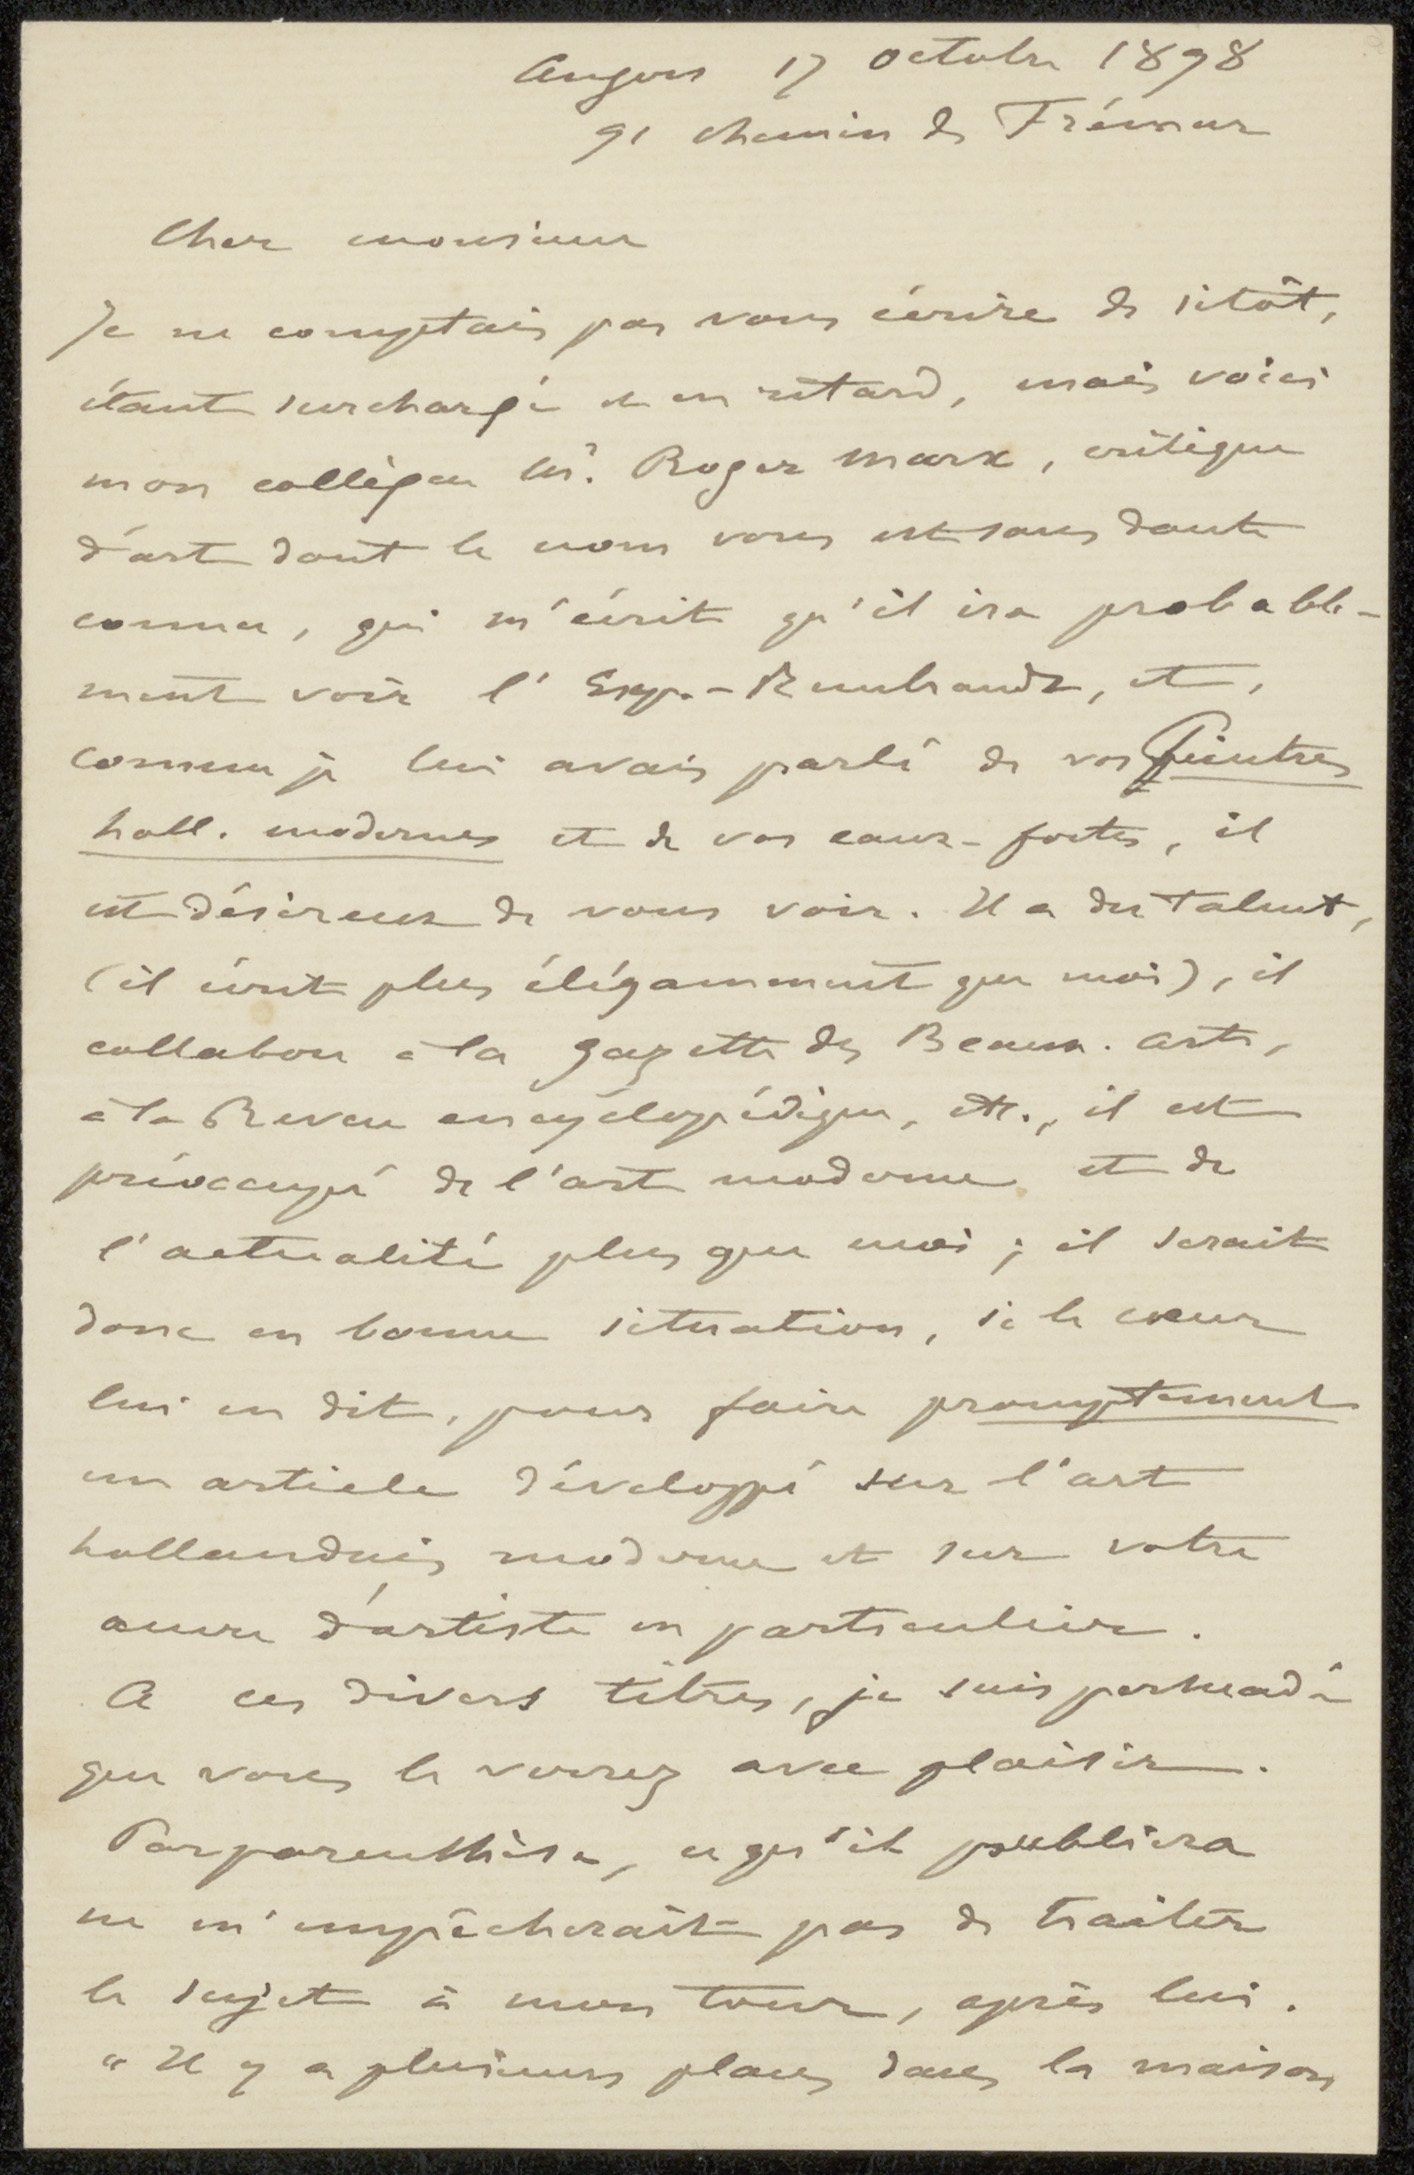 Angers 17 octobre 1898
91 chemin de Frémur
Cher monsieur
Je ne comptais pas vous écrire de sitôt,
étant surchargé et en retard, mais voici
mon collègue Mr. Roger Marx, critique
d'art dont le nom vous est sans doute
connu, qui m'écrit qu'il ira probable-
ment voir l'Exp.-Rembrandt, et,
comme je lui avais parlé de vos Peintres
holl. modernes et de vos eaux-fortes, il
est désireux de vous voir. Il a du talent,
(il écrit plus élégamment que moi), il
collabore à la Gazette des Beaux-arts,
à la Revue encyclopédique, etc., il est
préoccupé de l'art moderne et de
l'actualité plus que moi; il serait
donc en bonne situation, si le cœur
lui en dit, pour faire promptement
un article développé sur l'art
hollandais moderne et sur votre
œuvre d'artiste en particulier.
A ces divers titres, je suis persuadé
que vous le verrez avec plaisir.
Par parenthèse, ce qu'il publiera
ne m'empêcherait pas de traiter
le sujet à mon tour, après lui.
"Il y a plusieurs places dans la maison